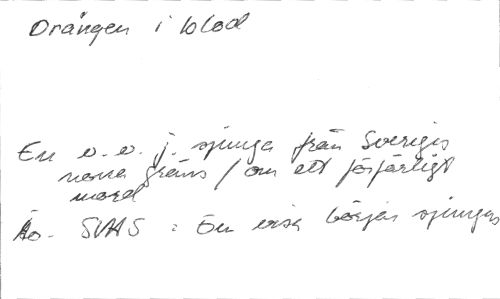 Drängen i blod
En v. v. j. sjunga från Sveriges
norra gräns / om ett förfärligt
mord
Äo. SVAS : En visa börjar sjungas